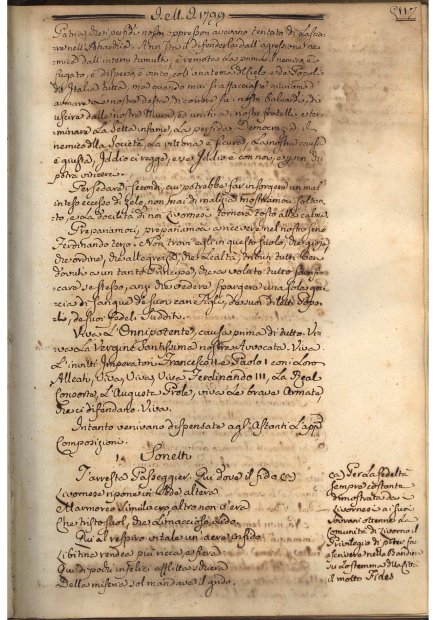 I. M. I. 1799
Patria, che i perfidi nostri oppressori avevano tentato di lasciare
nell'Anarchia. A noi sta il difenderla dall'aggressione nemica
e dall'interni tumulti, è remota la prima, il nemico è
fugato, è disperso, è vinto, coll'anatema del Cielo, e de Popoli
d'Italia tutta, ma quando mai si affacciasse giuriamo di
armare la nostra destra, di correre su i nostri baluardi, di
uscire dalle nostre Mura, ed uniti a nostri fratelli ester-
minare la Setta infame, la perfida Democrazia, il
nemico della Società. La vittoria è sicura, la nostra causa
è giusta, Iddio ci regge, e se Iddio è con noi, e chi
potrà vincere.
Per sedare i secondi, cui potrebbe far insorgere un mal
inteso eccesso di zelo, non mai di malizia mostriamoci soltan-
to, e la docilità di noi Livornesi tornerà tosto alla calma.
Prepariamoci, prepariamoci a ricevere nel nostro seno
Ferdinando terzo. Non trovi egli in questo suolo, che gioja,
che ordine, che allegrezza, che lealtà, tributi tutti ben
dovuti a un tanto Principe, che ha voluto tutto sacrifi-
care, se stesso, anzi che vedere spargere una sola goc-
cia di sangue de suoi cari Figli, de suoi diletti Popo-
li, de suoi Fedeli Sudditi.
Viva l'Onnipotente, causa prima di tutto. Vi-
va la Vergine Santissima nostra Avvocata. Viva
l'invitti Imperatori Francesco II e Paolo I con i loro
Alleati, Viva, Viva, Viva Ferdinando III, la Real
Consorte, l'Augusta Prole, viva le brave Armate,
che ci difendano. Viva.
Intanto venivano dispensate agl'Astanti le appresso
Composizioni.
Sonetti
T'arresta Passeggier. Qui dove il fido (a)
Livornese ripone in sede altera
Marmoreo Simulacro altro non v'era
Che tristo suol, che limaccioso lido.
Qui al respiro vitale un aere infido
Libitina rendea più ricca, e fiera
Quindi pochi infelici afflitta schiera
Della miseria sol mandava il grido.
(a) Per la fedeltà
sempre costante
dimostrata da
Livornesi a suoi
Sovrani ottenne la
Comunità di Livorno il
Privilegio di poter fa
scrivere nella Bandiera
su lo stemma della Città
il motto Fides